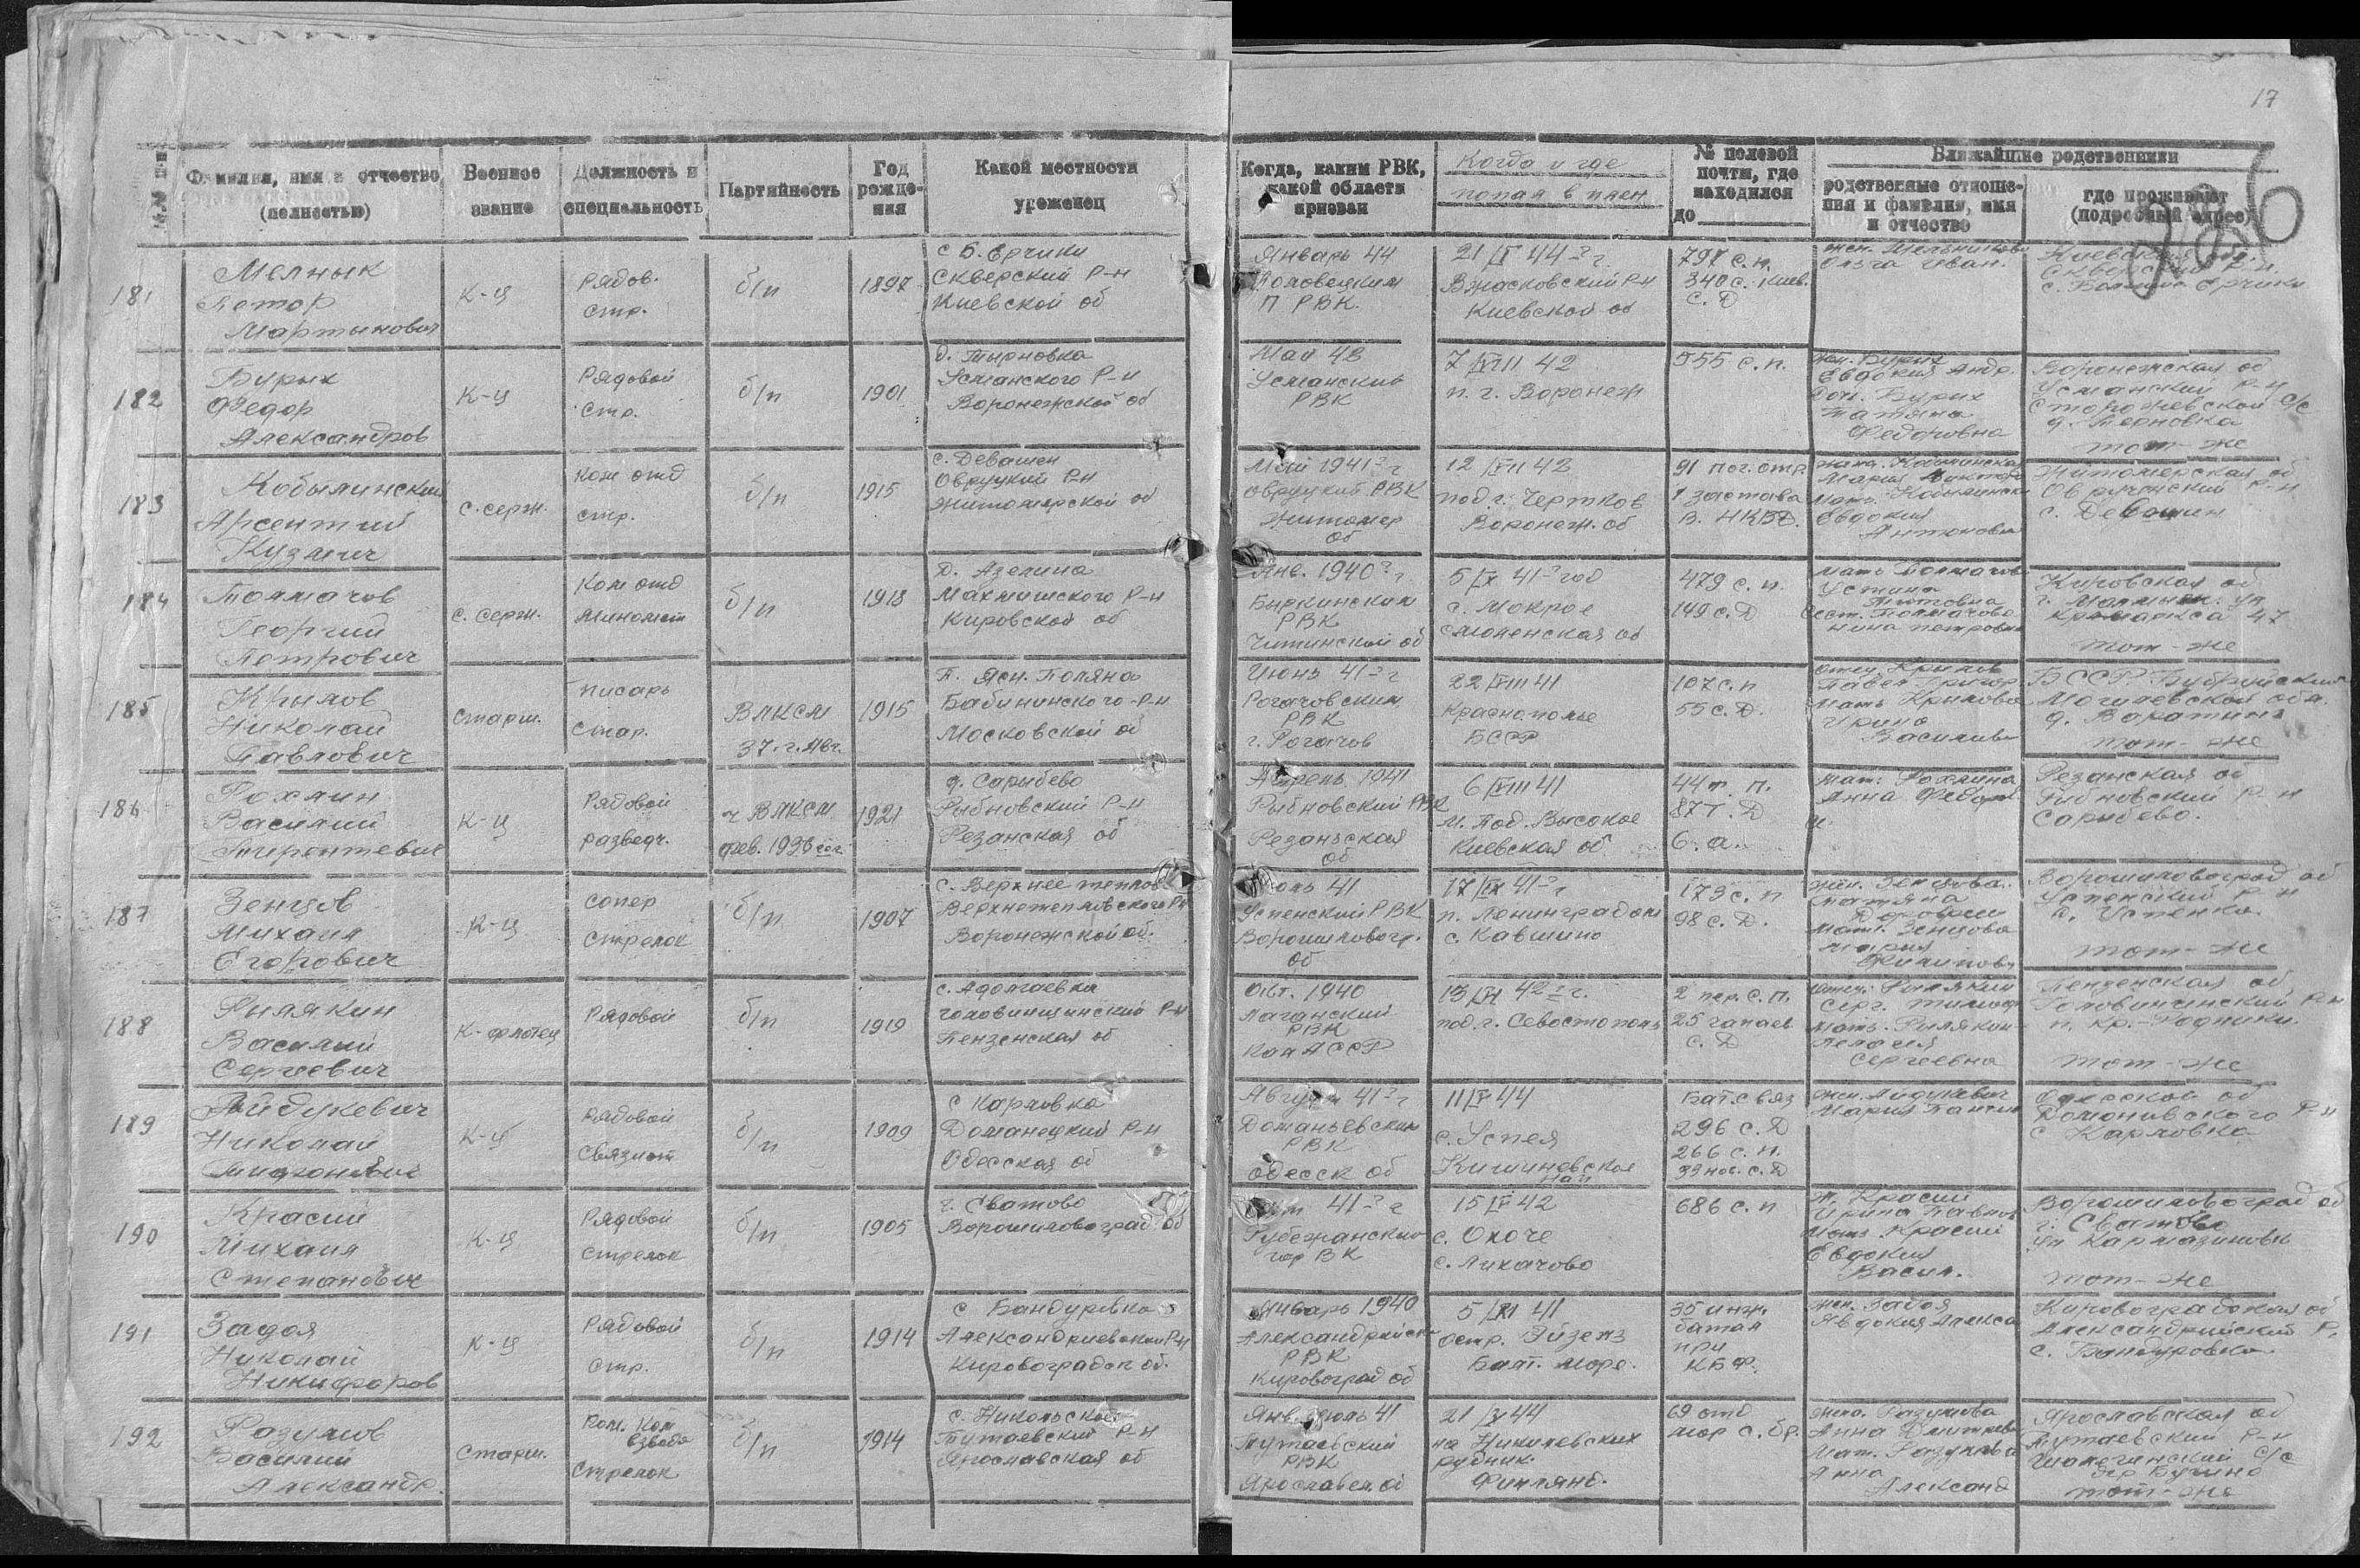 17
№№ п-п
Фамилия, имя и отчество
(полностью)
Военное
звание
Должность и
специальность
Партийность
Год
рожде-
ния
Какой местности
уроженец
Когда, каким РВК,
какой области
призван
Когда и где
попал в плен
№ полевой
почты, где
находился
до
Ближайшие родственники
родственные отноше-
ния и фамилия, имя
и отчество
где проживают
(подробный адрес)
181
Мелнык
Петор
Мартынович
к-ц
Рядов.
стр.
б/п
1897
с Б. Ерчики
Скверский Р-н
Киевской об
Январь 44
П РВК.
21/I 44 г.
Вжасковский Р-н
Киевской об
798 с.п.
340 с. Киев.
с. Д
Ольга Иван.
182
Бурых
Федор
Александров
к-ц
Рядовой
стр.
б/п
1901
д. Тырновка
Усманского Р-н
Воронежской об
Май 43
Усманский
РВК
7/VII 42
п. г. Воронеж
555 с.п.
жен. Бурых
Евдокия Андр.
Доч. Бурых
Татяна
Федоровна
Воронежская об
Усманский Р-н
Сторожевской с/с
д. Терновка
тот-же
183
Кобылинский
Арсентий
Кузмич
с. серж.
Ком отд
стр.
б/п
1915
с. Девашен
Овруцкий Р-н
Житомерской об
Май 1941 г
Овруцкий РВК
Житомер
об
12/VII 42
под г. Чертков
Воронеж. об
91 пог. отр.
1 застава
В. НКВД.
жена. Кобылинска
Мария
Евдокия
Антонови
Житомерская об
Овручский Р-н
с. Девашин
184
Толмачов
Георгий
Петрович
с. серж.
Ком отд
Миномет
б/п
1918
д. Азелина
Махмишского Р-н
Кировской об
Янв. 1940 г
Быркинским
РВК
Читинской об
5/IX 41 год
с. Мокрое
Смоленская об
479 с. п.
149 с. Д
мать Толмачов
Устина
Титовна
Сест. Толмачова
Нина Петровна
Кировская об
К. Маркса 47
тот-же
185
Крылов
Николай
Павлович
старш.
писарь
стар.
ВЛКСМ
37. г. Авг.
1915
П. Ясн. Поляна
Бабынинского Р-н
Московской об
Июнь 41 г
Рогачовским
РВК
г. Рогачов
22/VIII 41
Краснополье
БССР
107 с. п
55 с. Д.
отец Крылов
Павел Григор
мать Крылова
Ирина
Василив
БССР
Могилевской обл.
тот-же
186
Рохлин
Василий
к-ц
Рядовой
развед.
ч ВЛКСМ
фев. 1936 г
1921
д. Сарыбево
Рыбновский Р-н
Резанская об
Апрель 1941
Рыбновский РВК
Резаньская
об
6/VIII 41
м. Под. Высокое
Киевская об
44 т. п.
87 Т. Д
6. а.
мат. Рохлина
Анна Федор
Резанская об
Рибновский Р-н
Сарыбево.
187
Зенцов
Михаил
Егорович
к-ц
сопер
Стрелок
б/п
1907
с. Верхнее теплов
Верхнетепловского Р-н
Воронежской об.
Июль 41
Успенский РВК
Ворошиловогр.
об
17/IX 41 г
п. Ленинградом
с. Кавшино
173 с. п
98 с. Д.
жен. Зенцова
Татяна
мат. Зенцова
Мария
Филипов
Ворошиловоград об
Успенский Р-н
с. Успенка
тот-же
188
Рылякин
Василий
Сергеевич
К-флотец
Рядовой
б/п
1919
с. Адолгаевка
Головинщинский Р-н
Пензенская об
Окт. 1940
Лаганский
РВК
Кал АССР
под г. Севостополь
2 пер. с. п.
25 чапаев
с. Д
Серг. Тимоф
мать. Рилякин
Пелагея
Сергеевна
Пензенская об.
Головинчинский Р-н
п. Кр. - Родники.
тот-же
189
Айдукевич
Николай
к-ц
Рядовой
Связист
б/п
1909
с Карловка
Доманецкий Р-н
Одесская об
Август 41 г
Доманьевским
РВК
Одесск об
11/I 44
с. Успея
Кишиневское
нап
Бат. связ
296 с. Д
266 с. п.
жен. Айдукевич
Мария
Одесской об
Домоновского Р-н
с Карловка
190
Красий
Михаил
Степанович
к-ц
Рядовой
Стрелок
б/п
1905
г. Сватово
Ворошиловоград об
41 г
Рубежанским
гор ВК
15/V 42
с. Охоче
с. Лихачово
686 с. п
ж. Красий
Ирина Павлов
мать Красий
Евдокия
Васил.
Ворошиловоград об
г. Сватово
ул Кармазиновки
тот-же
191
Задоя
Николай
Никифоров
к-ц
Рядовой
стр.
б/п
1914
с Бандуревка
Александриевский Р-н
Кировоградск об.
Январь 1940
Александрийск
РВК
Кировоград об
5/XII 41
остр. Эйзелз
Балт. море.
35 инж.
батал
при
КБФ.
жен. Задоя
Явдокия Алекса
Кировоградская об
Александрийский Р.
с. Бандуровка
192
Разумов
Василий
Александр.
Старш.
Пом. Ком
взвода
Стрелок
б/п
1914
с. Никольское
Тутаевский Р-н
Ярославская об
Тутаевский
РВК
Ярославск об
21/I 44
на Никилевских
рудник.
Финлянд.
69 отд
мор с. бр.
жена. Разумова
Анна Дмитрев
мат. Разумова
Анна
Александ
Ярославская об
Тутаевский Р-н
тот-же